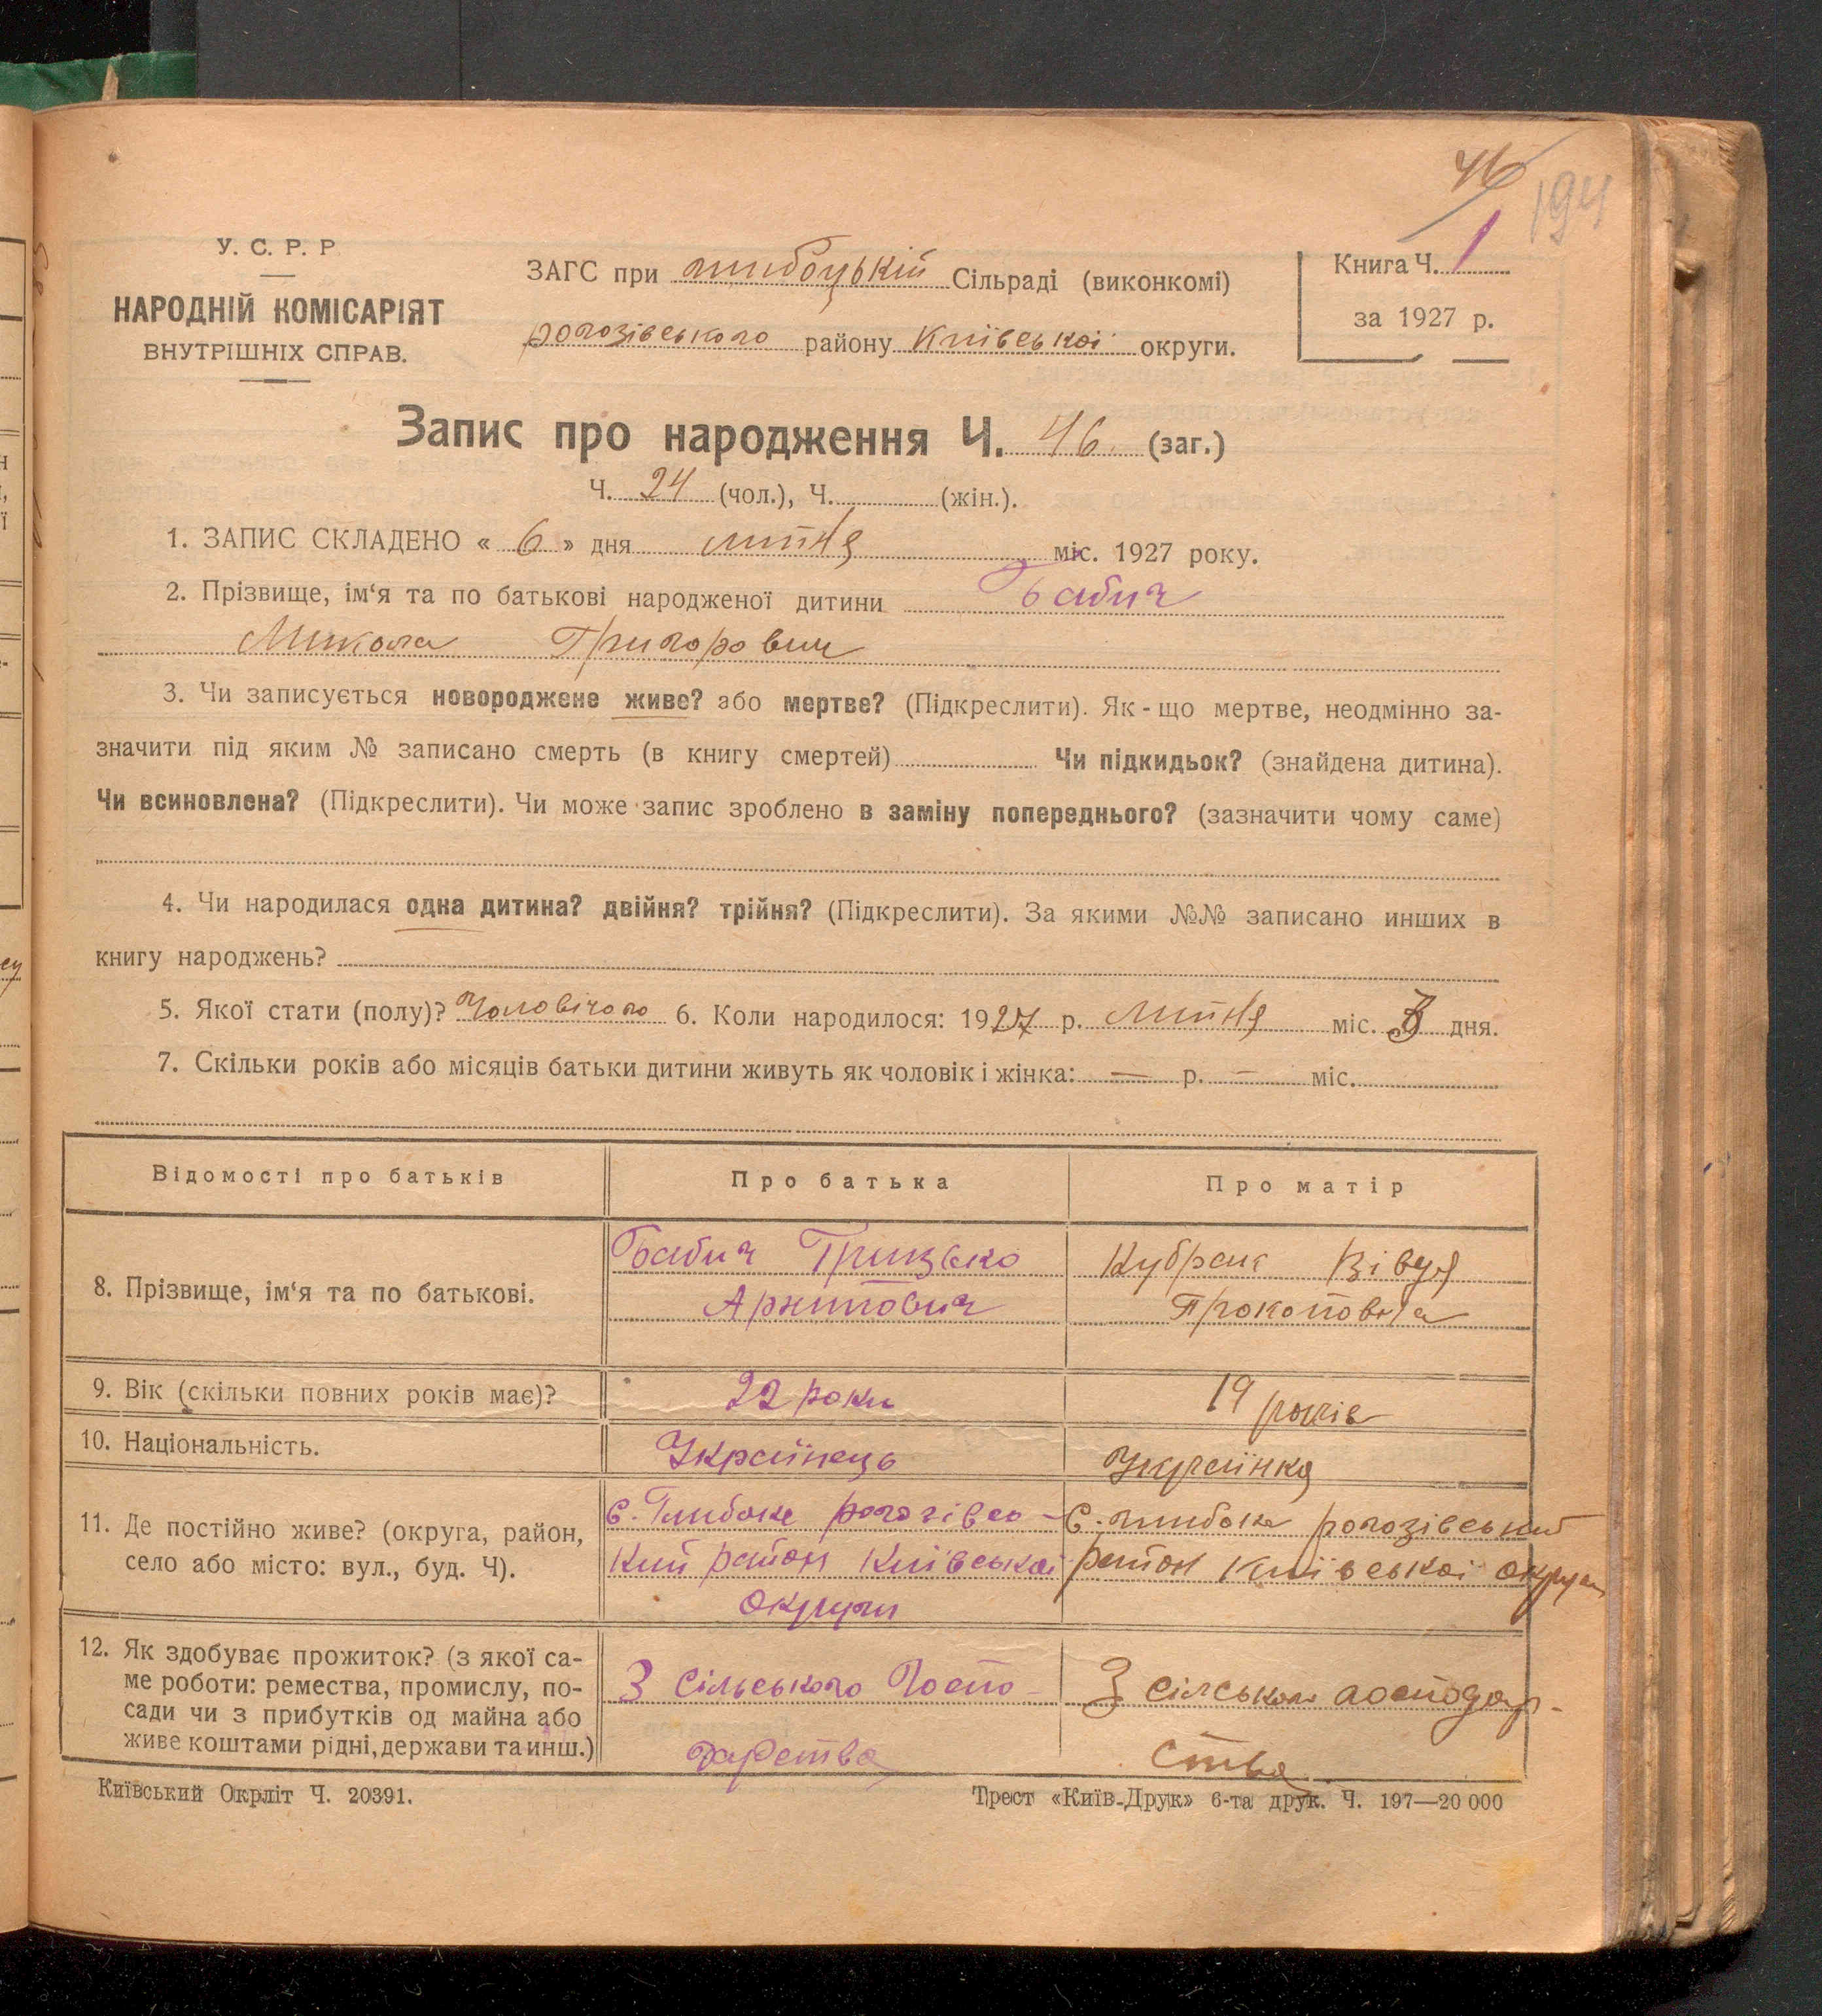 46
194
У. С. Р. Р
НАРОДНІЙ КОМІСАРІЯТ
ВНУТРІШНІХ СПРАВ.
ЗАГС при глибоцькій Сільраді (виконкомі)
рогозівського району Київської округи.
Книга Ч. 1
за 1927 р.
Запис про народження Ч. 46. (заг.)
Ч. 24 (чол.), Ч. (жін.).
1. ЗАПИС СКЛАДЕНО « 6 » дня липня міс. 1927 року.
2. Прізвище, ім‘я та по батькові народженої дитини Бабич
Микола Григорович
3. Чи записується новороджене живе? або мертве? (Підкреслити). Як - що мертве, неодмінно за-
значити під яким № записано смерть (в книгу смертей) Чи підкидьок? (знайдена дитина).
Чи всиновлена? (Підкреслити). Чи може запис зроблено в заміну попереднього? (зазначити чому саме)
4. Чи народилася одна дитина? двійня? трійня? (Підкреслити). За якими №№ записано инших в
книгу народжень?
5. Якої стати (полу)? Чоловічого 6. Коли народилося: 1927 р. липня міс. дня.
7. Скільки років або місяців батьки дитини живуть як чоловік і жінка: — р. — міс.
Відомості про батьків
Про батька
Про матір
8. Прізвище, ім‘я та по батькові.
Бабич Грицько
Архипович
Прокоповна
9. Вік (скільки повних років має)?
22 роки
19 років
10. Національність.
Українець
Українка
11. Де постійно живе? (округа, район,
село або місто: вул., буд. Ч).
С. Глибоке рогозівсь-
кий район Київської
округи
С. глибоке рогозівський
район Київської округи
12. Як здобуває прожиток? (з якої са-
ме роботи: ремества, промислу, по-
сади чи з прибутків од майна або
живе коштами рідні, держави та инш.)
З сільського Госпо-
дарства
З сілського господар-
ства
Київський Окрліт Ч. 20391.
Трест «Київ-Друк» 6-та друк. Ч. 197—20 000